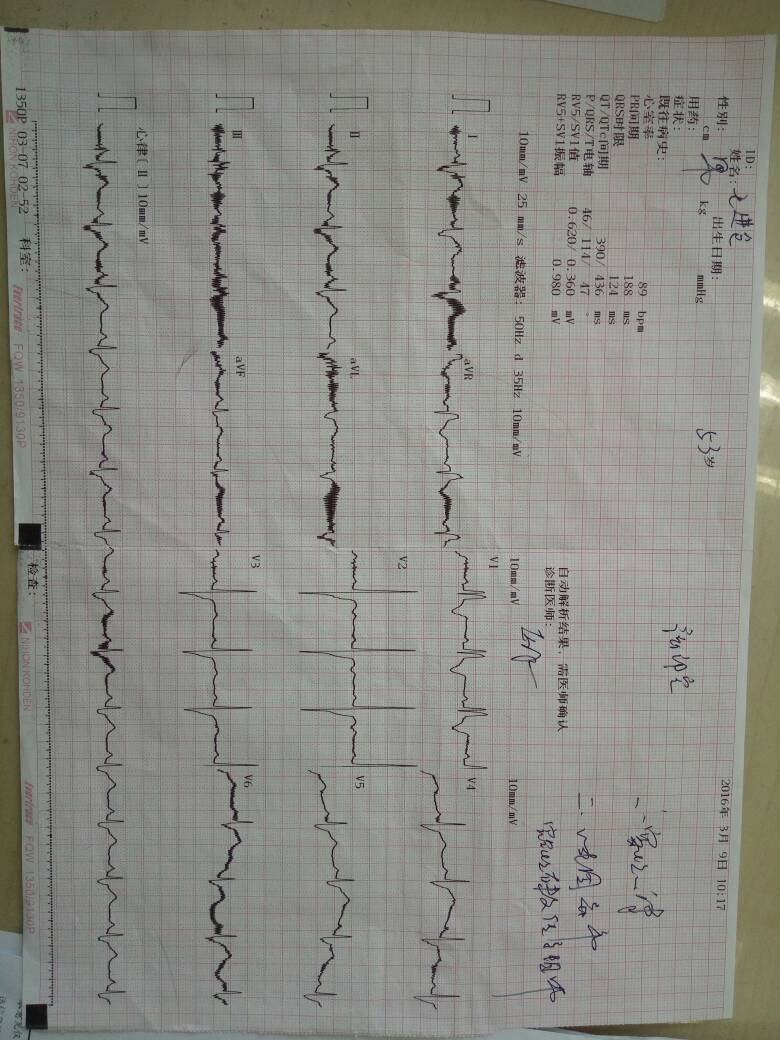 2016年 3月 9日 10:17
ID:
姓名:
出生日期:
53岁
性别: 男
cm kg mmHg
用药:
症状:
既往病史:
心室率 89 bpm
PR间期 188 ms
QRS时限 124 ms
QT/QTc间期 390/ 436 ms
P/QRS/T电轴 46/ 114/ 47 °
RV5/SV1值 0.620/ 0.360 mV
RV5+SV1振幅 0.980 mV
自动解析结果，需医师确认
诊断医师:
一、窦性心律
二、心电图
10mm/mV 25 mm/s 滤波器: 50Hz d 35Hz 10mm/mV
10mm/mV
10mm/mV
I aVR V1 V4
II aVL V2 V5
III aVF V3 V6
心律(II)10mm/mV
1350P 03-07 02-52 科室: 检查:
NIHON KOHDEN FQW 1350/9130P NIHON KOHDEN FQW 1350/9130P